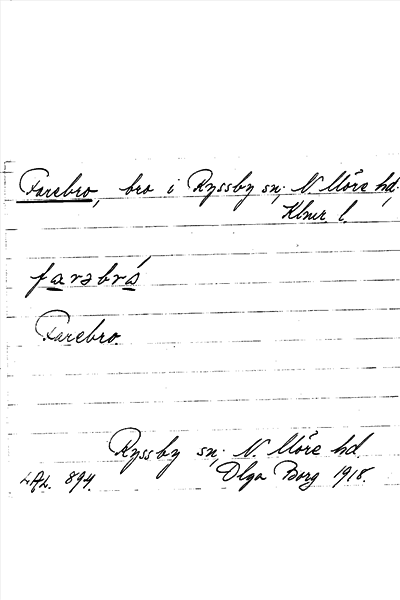 Farebro, bro i Ryssby sn, N. Möre hd,
Klmr l.
farəbrǻ
Farebro.
Ryssby sn, N. Möre hd.
LAL. 894. Olga Borg 1918.